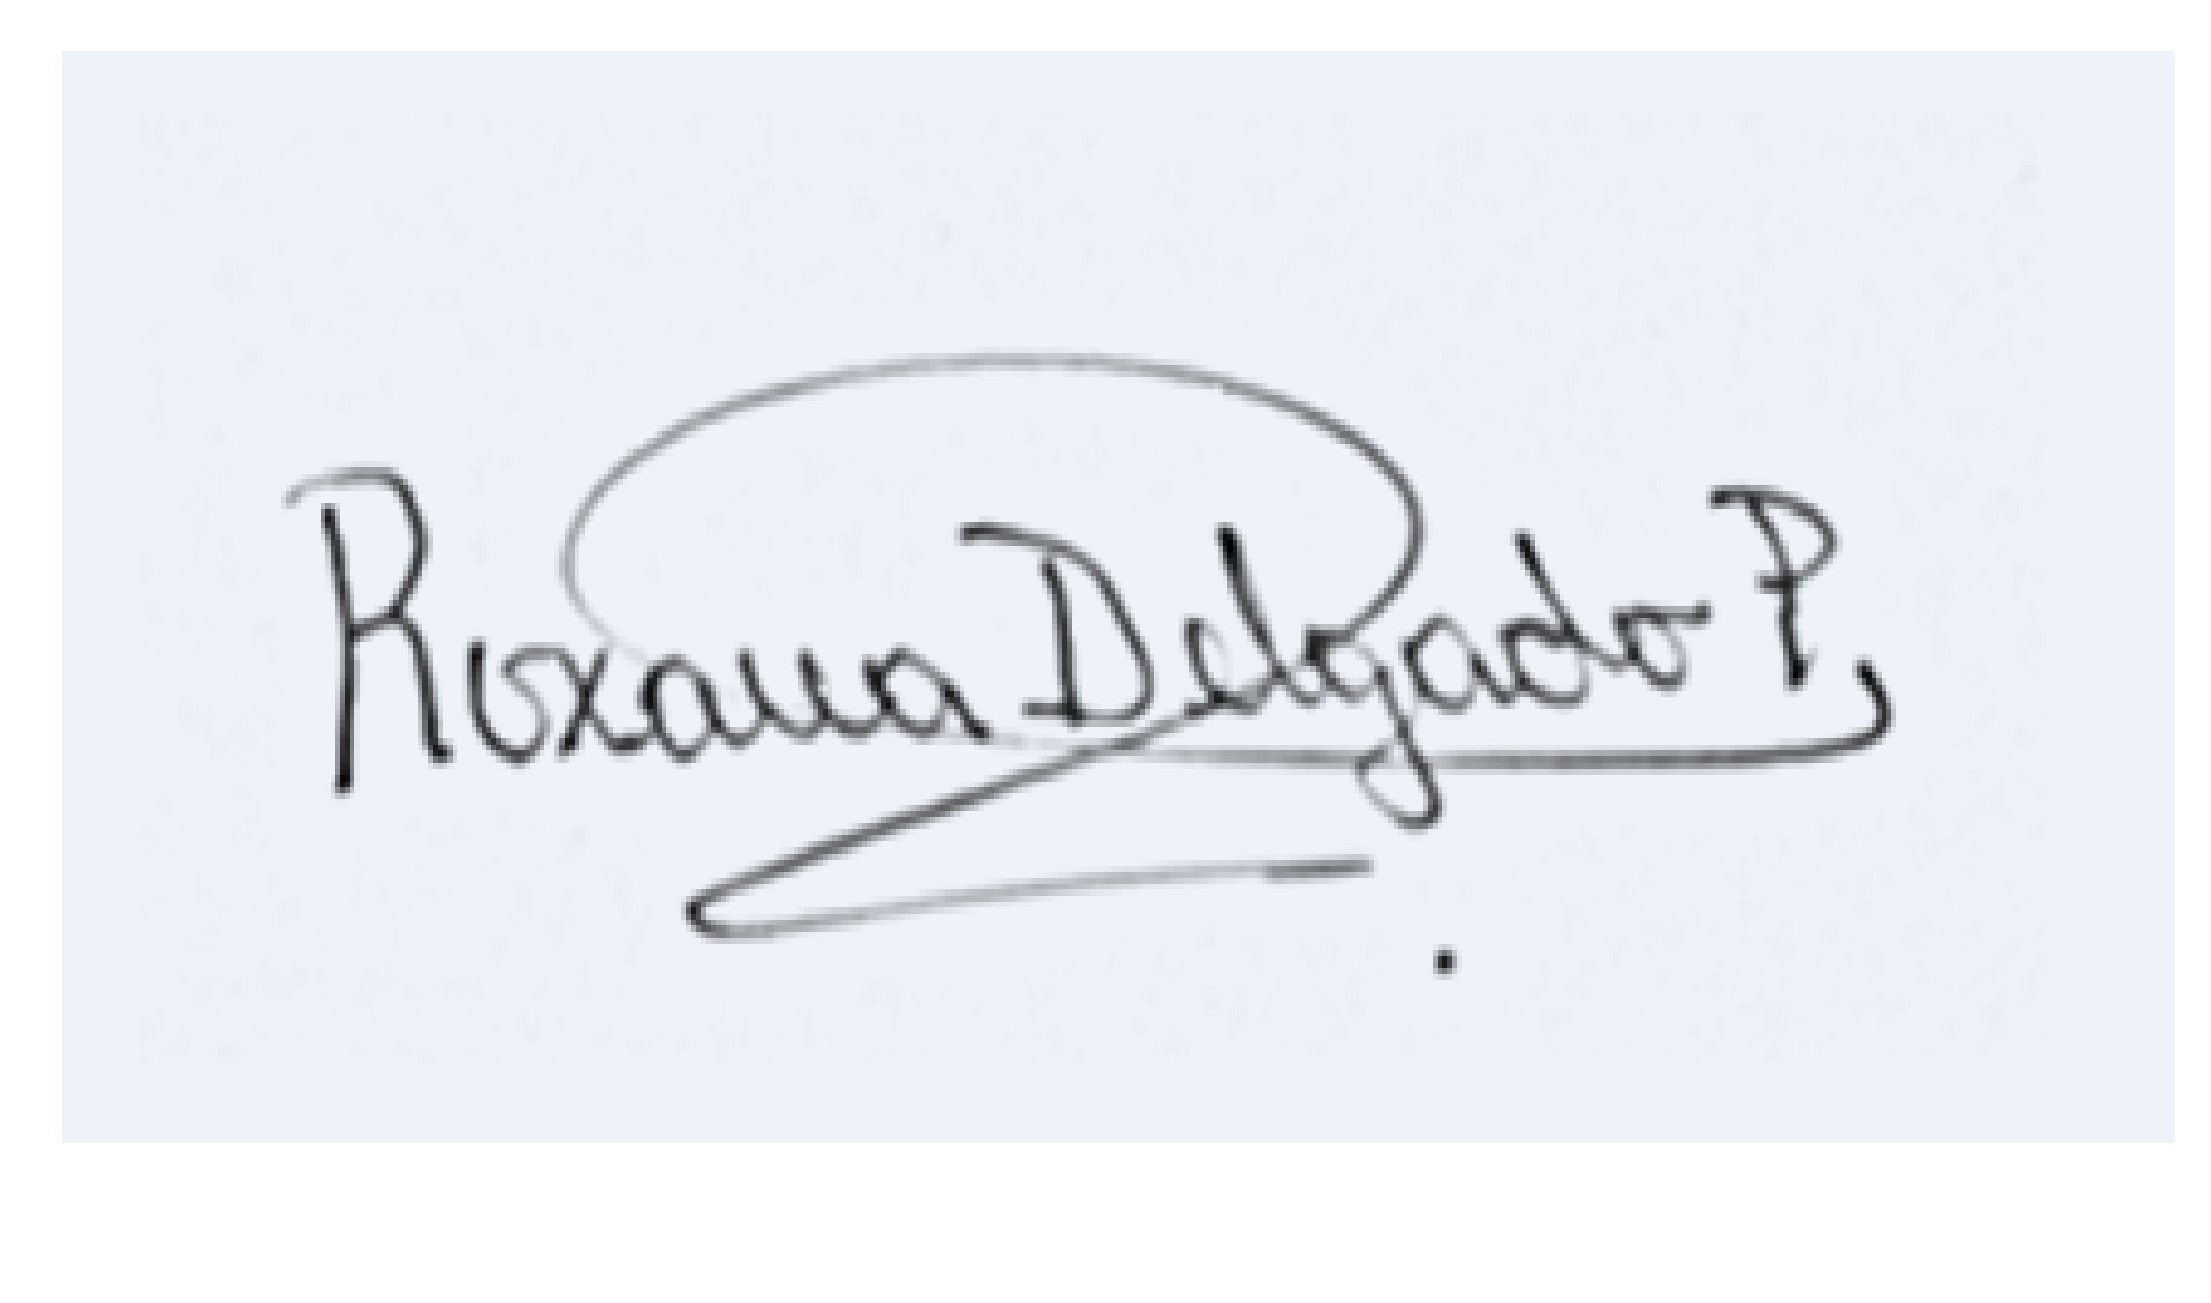 Roxana Delgado P.